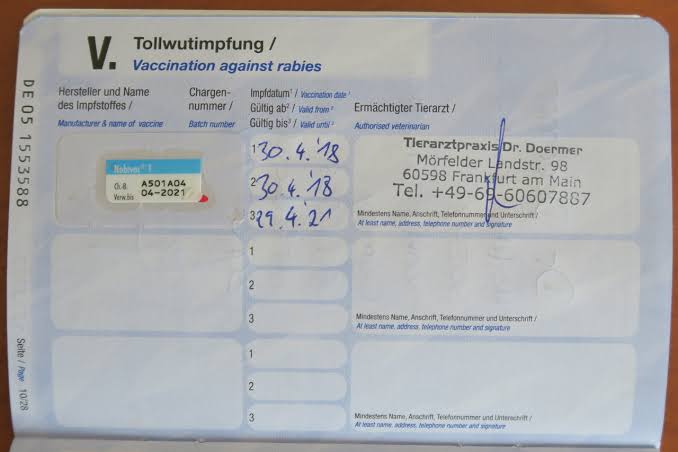 V. Tollwutimpfung /
Vaccination against rabies
DE 05 1553588
Hersteller und Name
des Impfstoffes /
Manufacturer & name of vaccine
Chargen-
nummer /
Batch number
Impfdatum¹ / Vaccination date ¹
Gültig ab² / Valid from ²
Gültig bis³ / Valid until ³
Ermächtigter Tierarzt /
Authorised veterinarian
Nobivac® T
Ch.-B. A501A04
Verw.bis 04-2021
1 30. 4. '18
2 30. 4. '18
3 29. 4. 21
Tierarztpraxis Dr. Doermer
Mörfelder Landstr. 98
60598 Frankfurt am Main
Tel. +49-69-60607887
Mindestens Name, Anschrift, Telefonnummer und Unterschrift /
At least name, address, telephone number and signature
1
2
3
Mindestens Name, Anschrift, Telefonnummer und Unterschrift /
At least name, address, telephone number and signature
1
2
3
Mindestens Name, Anschrift, Telefonnummer und Unterschrift /
At least name, address, telephone number and signature
Seite / Page 10/28